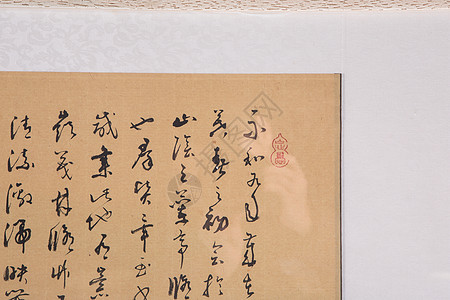 永和九年歲在
暮春之初會於
山陰之蘭亭脩
也群賢畢至少
咸集此地有崇
嶺茂林脩竹
清流激湍映